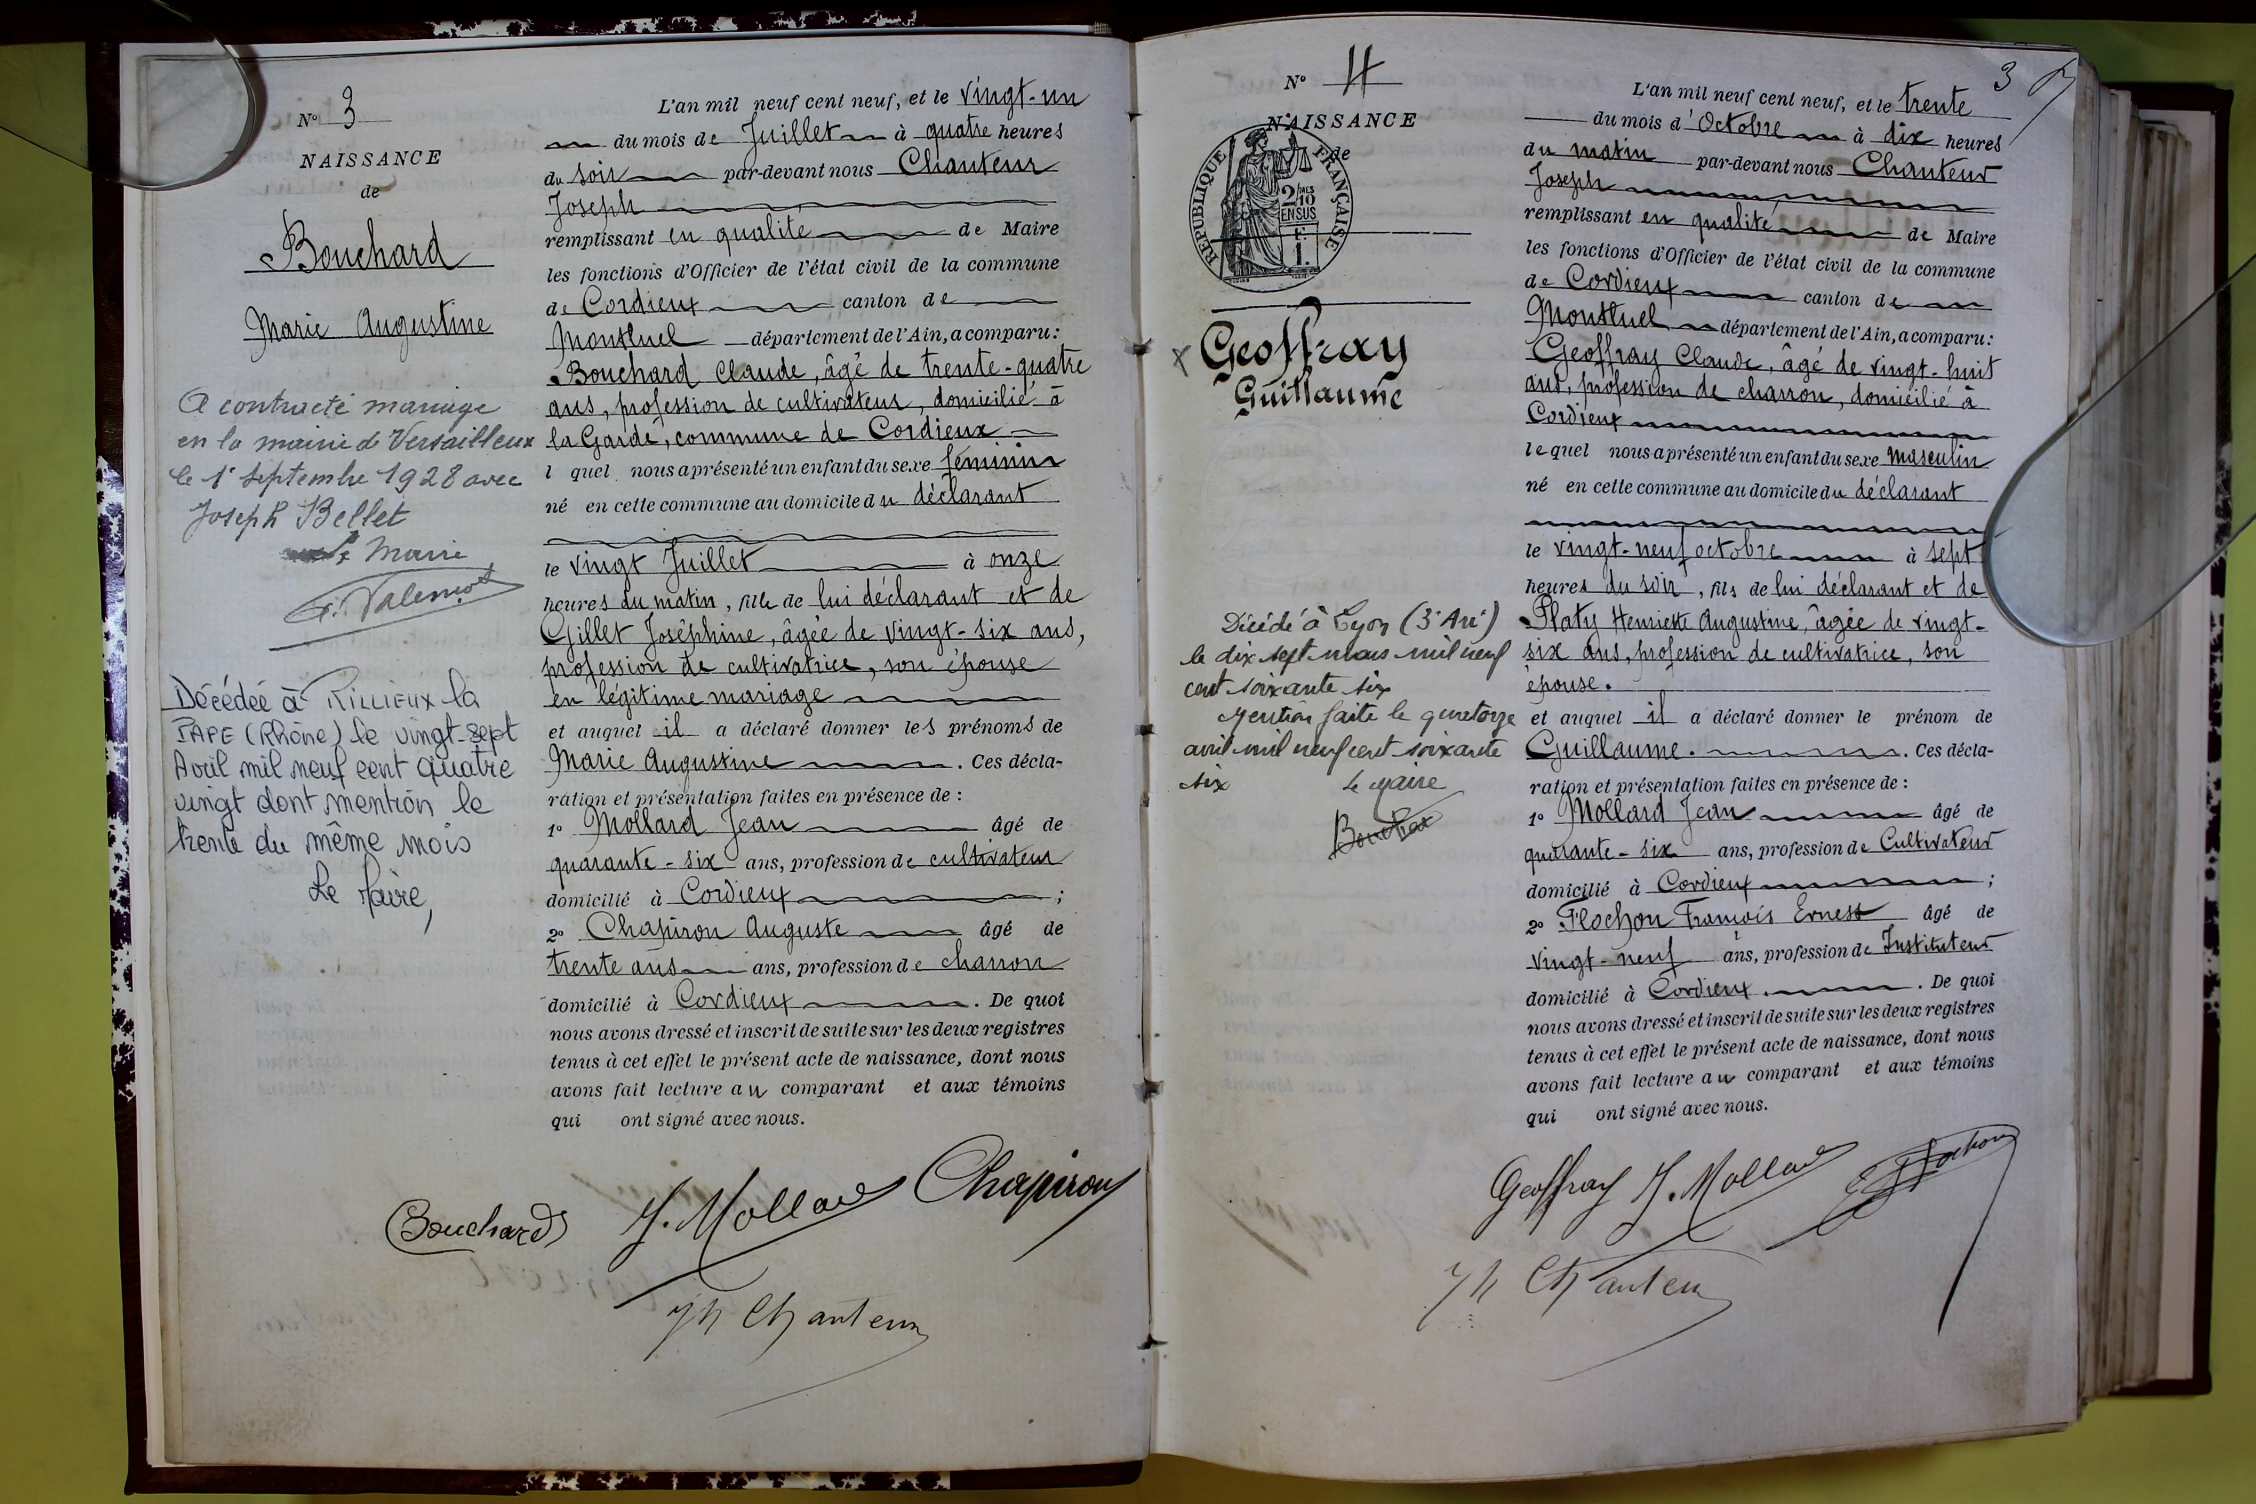 N° 3
NAISSANCE
de
Bouchard
Marie Augustine
A contracté mariage
en la mairie d Versailleux
le 1er septembre 1928 avec
Joseph Bellet
Maire
Décédée à RILLIEUX la
PAPE (Rhône) le vingt-sept
Avril mil neuf cent quatre
vingt dont mention le
trente du même mois
Le Maire,
L'an mil neuf cent neuf, et le vingt-un
du mois de Juillet à quatre heures
du soir par-devant nous Chanteur
Joseph
remplissant en qualité de Maire
les fonctions d'Officier de l'état civil de la commune
de Cordieux canton de
Montluel département de l'Ain, a comparu :
Bouchard Claude, âgé de trente-quatre
ans, profession de cultivateur, domicilié à
la Garde, commune de Cordieux
l quel nous a présenté un enfant du sexe féminin
né en cette commune au domicile du déclarant
le vingt Juillet à onze
heures du matin, fille de lui déclarant et de
Gillet Joséphine, âgée de vingt-six ans,
profession de cultivatrice, son épouse
en légitime mariage
et auquel il a déclaré donner les prénoms de
Marie Augustine. Ces décla-
ration et présentation faites en présence de :
1° Mollard Jean âgé de
quarante-six ans, profession de cultivateur
domicilié à Cordieux ;
2° Chapiron Auguste âgé de
trente ans ans, profession de charron
domicilié à Cordieux. De quoi
nous avons dressé et inscrit de suite sur les deux registres
tenus à cet effet le présent acte de naissance, dont nous
avons fait lecture au comparant et aux témoins
qui ont signé avec nous.
Bouchard J. Mollard Chapiron
Jh Chanteur
3
N° 4
NAISSANCE
de
RÉPUBLIQUE FRANÇAISE
2/10
EN SUS
F.
1.
Geoffray
Guillaume
Décédé à Lyon (3e Arr)
le dix sept mars mil neuf
cent soixante six
Mention faite le quatorze
avril mil neuf cent soixante
six Le Maire
L'an mil neuf cent neuf, et le trente
du mois d'Octobre à dix heures
du matin par-devant nous Chanteur
Joseph
remplissant en qualité de Maire
les fonctions d'Officier de l'état civil de la commune
de Cordieux canton de
Montluel département de l'Ain, a comparu :
Geoffray Claude, âgé de vingt-huit
ans, profession de charron, domicilié à
Cordieux
lequel nous a présenté un enfant du sexe masculin
né en cette commune au domicile du déclarant
le vingt-neuf octobre à sept
heures du soir, fils de lui déclarant et de
Platy Henriette Augustine, âgée de vingt-
six ans, profession de cultivatrice, son
épouse.
et auquel il a déclaré donner le prénom de
Guillaume. Ces décla-
ration et présentation faites en présence de :
1° Mollard Jean âgé de
quarante-six ans, profession de Cultivateur
domicilié à Cordieux ;
2° Flochon François Ernest âgé de
vingt-neuf ans, profession de Instituteur
domicilié à Cordieux. De quoi
nous avons dressé et inscrit de suite sur les deux registres
tenus à cet effet le présent acte de naissance, dont nous
avons fait lecture au comparant et aux témoins
qui ont signé avec nous.
Geoffray J. Mollard E Flochon
Jh Chanteur